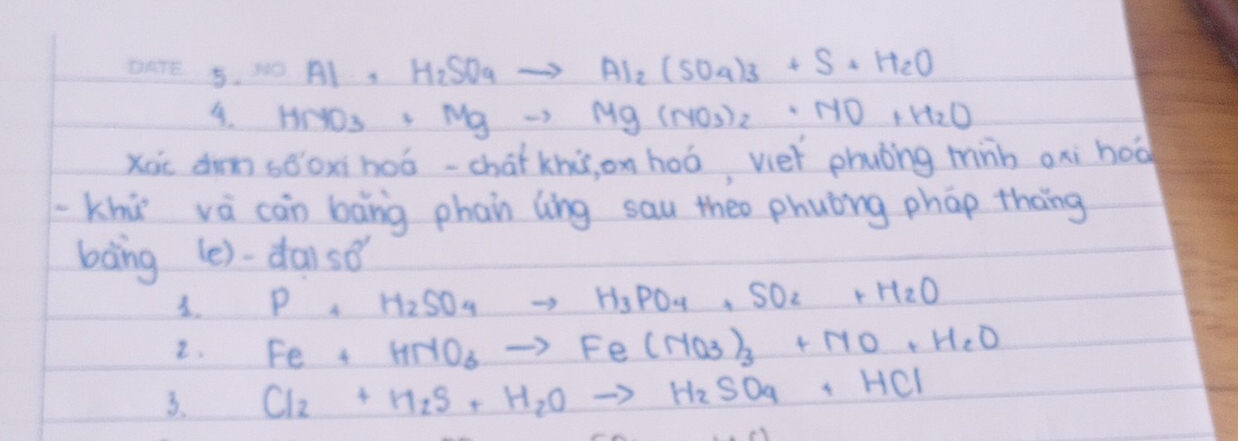 DATE 5. NO Al + H2SO4 → Al2(SO4)3 + S + H2O
4. HNO3 + Mg → Mg(NO3)2 + NO + H2O
Xác định số oxi hoá - chất khử, oxi hoá, viết phương trình oxi hoá
- khử và cân bằng phản ứng sau theo phương pháp thăng
bằng (e) - đại số
1. P + H2SO4 → H3PO4 + SO2 + H2O
2. Fe + HNO3 → Fe(NO3)3 + NO + H2O
3. Cl2 + H2S + H2O → H2SO4 + HCl